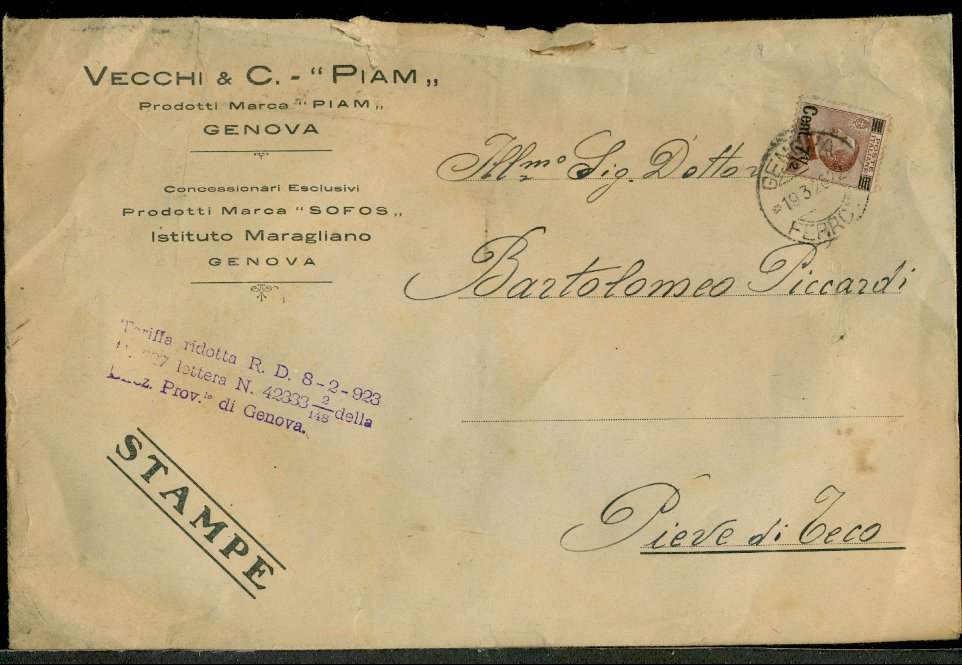 VECCHI & C. - “PIAM„
Prodotti Marca “PIAM„
GENOVA
Concessionari Esclusivi
Prodotti Marca “SOFOS„
Istituto Maragliano
GENOVA
Tariffa ridotta R. D. 8-2-923
lettera N. 42333 2/148 della
Prov.le di Genova.
STAMPE
Cent. 7½
POSTE ITALIANE
GENOVA
19.3.2
FERROV
Ill.mo Sig. Dottor
Bartolomeo Piccardi
Pieve di Teco